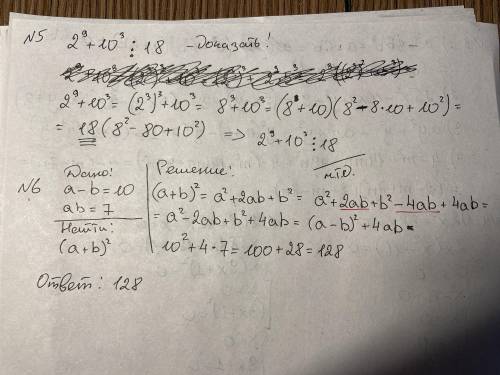 N5 2⁹+10³ ⋮ 18 - доказать!
2⁹+10³ = (2³)³+10³ = 8³+10³ = (8+10)(8²-8·10+10²) =
= 18(8²-80+10²) => 2⁹+10³ ⋮ 18
ч.т.д.
N6
Дано:
a-b=10
ab=7
Найти:
(a+b)²
Решение:
(a+b)² = a²+2ab+b² = a²+2ab+b²-4ab+4ab=
= a²-2ab+b²+4ab = (a-b)²+4ab=
10²+4·7=100+28=128
Ответ: 128